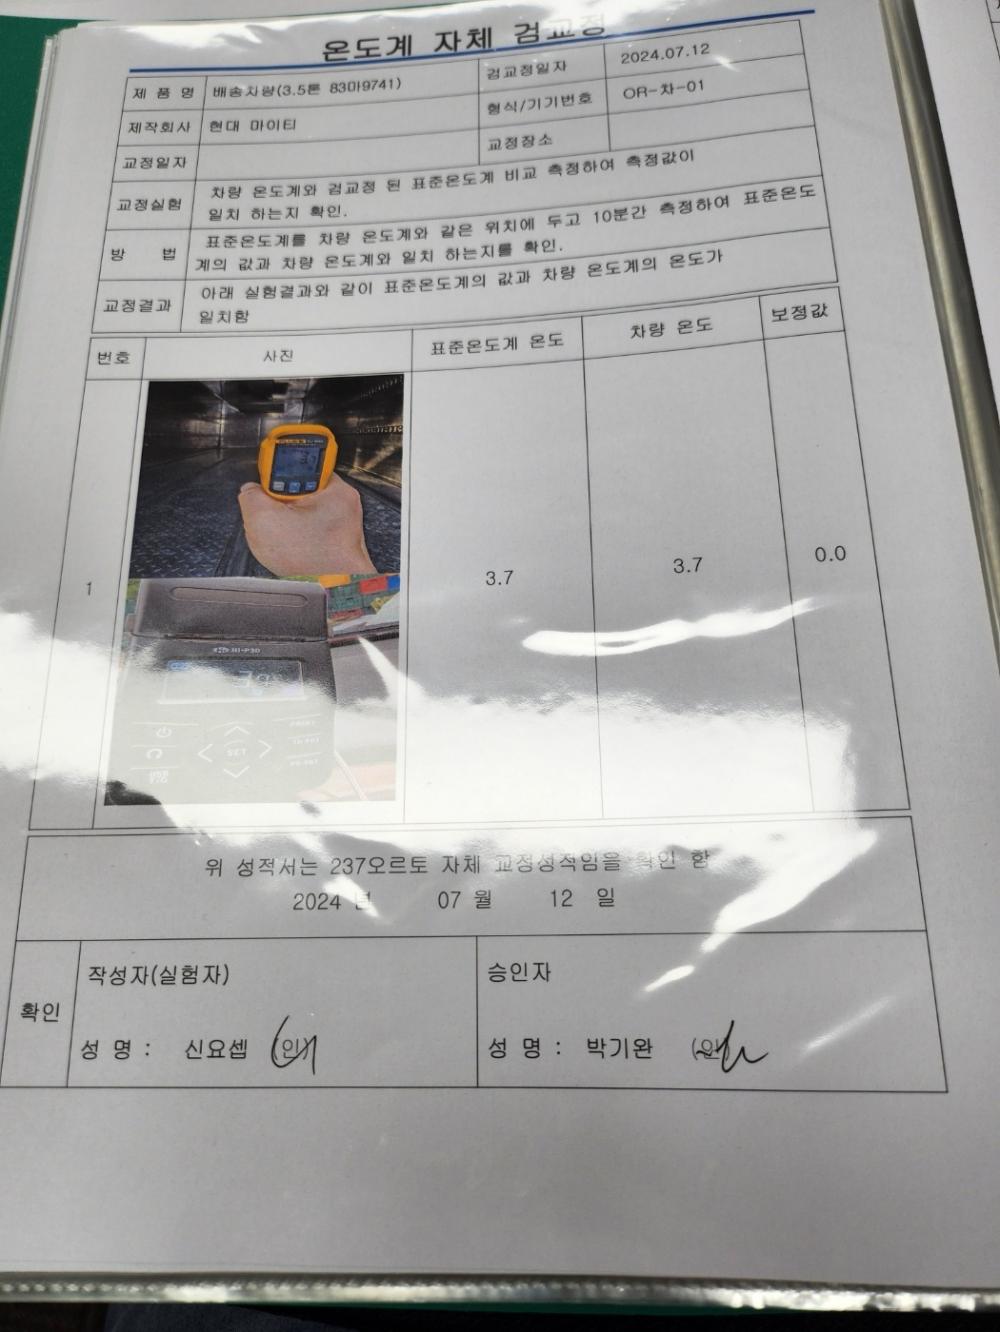 온도계 자체 검교정
제 품 명 배송차량(3.5톤 83마9741) 검교정일자 2024.07.12
제작회사 현대 마이티 형식/기기번호 OR-차-01
교정일자 교정장소
교정실험 차량 온도계와 검교정 된 표준온도계 비교 측정하여 측정값이
일치 하는지 확인.
방 법 표준온도계를 차량 온도계와 같은 위치에 두고 10분간 측정하여 표준온도
계의 값과 차량 온도계와 일치 하는지를 확인.
교정결과 아래 실험결과와 같이 표준온도계의 값과 차량 온도계의 온도가
일치함
번호 사진 표준온도계 온도 차량 온도 보정값
1 3.7 3.7 0.0
위 성적서는 237오르토 자체 교정성적임을 확인 함
2024 년 07 월 12 일
확인
작성자(실험자) 승인자
성 명 : 신요셉 (인) 성 명 : 박기완 (인)